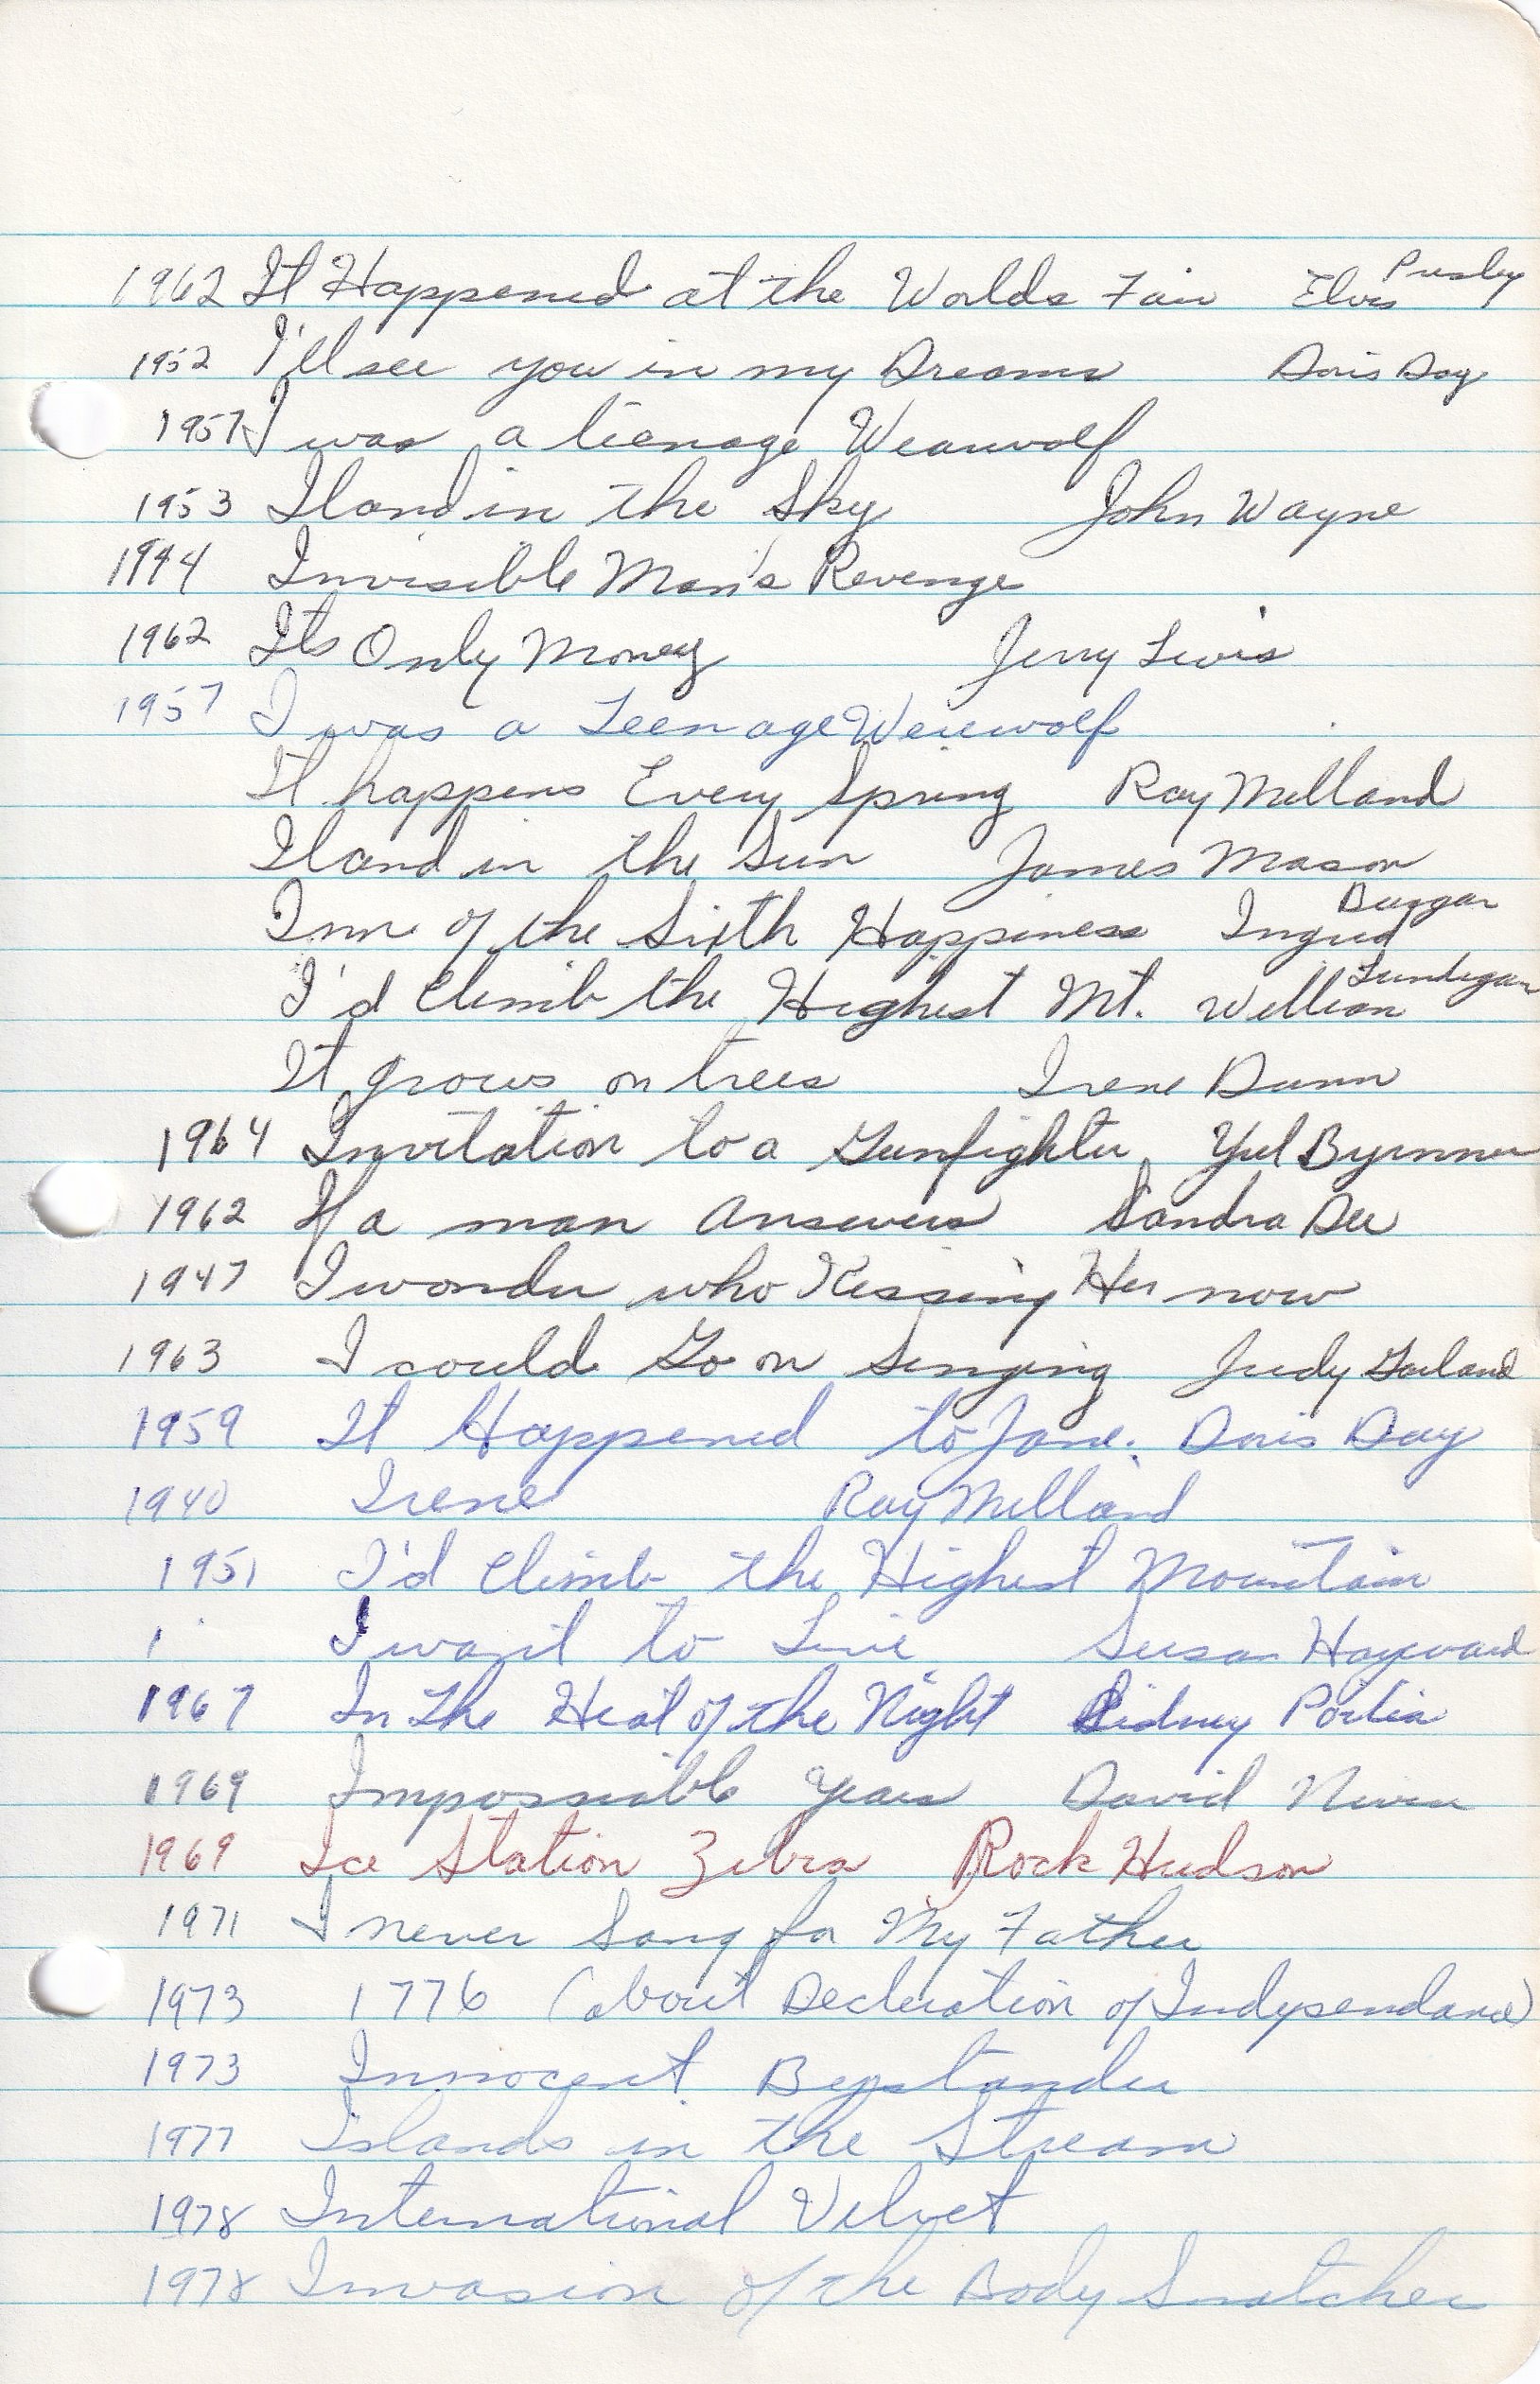 1962 It Happened at the Worlds Fair Elvis Presley
1952 I'll see you in my Dreams Doris Day
1957 I was a teenage Wearwolf
1953 Iland in the Sky John Wayne
1944 Invisible Man's Revenge
1962 Its Only Money Jerry Lewis
1957 I was a Teenage Werewolf
It happens Every Spring Ray Milland
Iland in the Sun James Mason
Inn of the Sixth Happiness Ingrid
I'd Climb the Highest Mt. William Lundigan
It grows on trees Irene Dunn
1964 Invitation to a Gunfighter Yul Byrnner
1962 If a man Answers Sandra Dee
1947 I wonder who Kissing Her now
1963 I could Go on Singing Judy Garland
1959 It Happened to Jane. Doris Day
1940 Irene Ray Milland
1951 I'd Climb the Highest Mountain
1 I want to Live Susan Hayward
1967 In The Heat of the Night Sidney Portier
1969 Impossible Years David Niven
1969 Ice Station Zebra Rock Hudson
1971 I never Sang for My Father
1973 1776 (about Decleration of Indypendance)
1973 Innocent Bystander
1977 Islands in the Stream
1978 International Velvet
1978 Invasion of the Body Snatcher